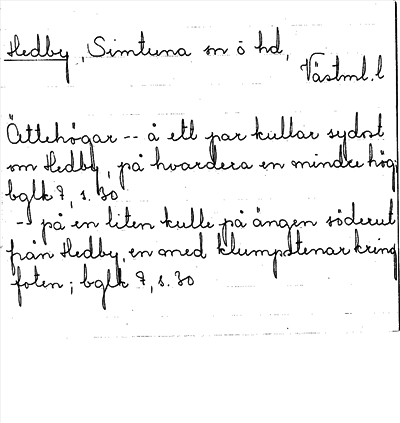 Hedby, Simtuna sn ö hd,
Västml. l
Ättehögar -- å ett par kullar sydost
om Hedby, på hvardera en mindre hög;
bglk 7, s. 30
-- på en liten kulle på ängen söderut
från Hedby, en med klumpstenar kring
foten; bglk 7, s. 30